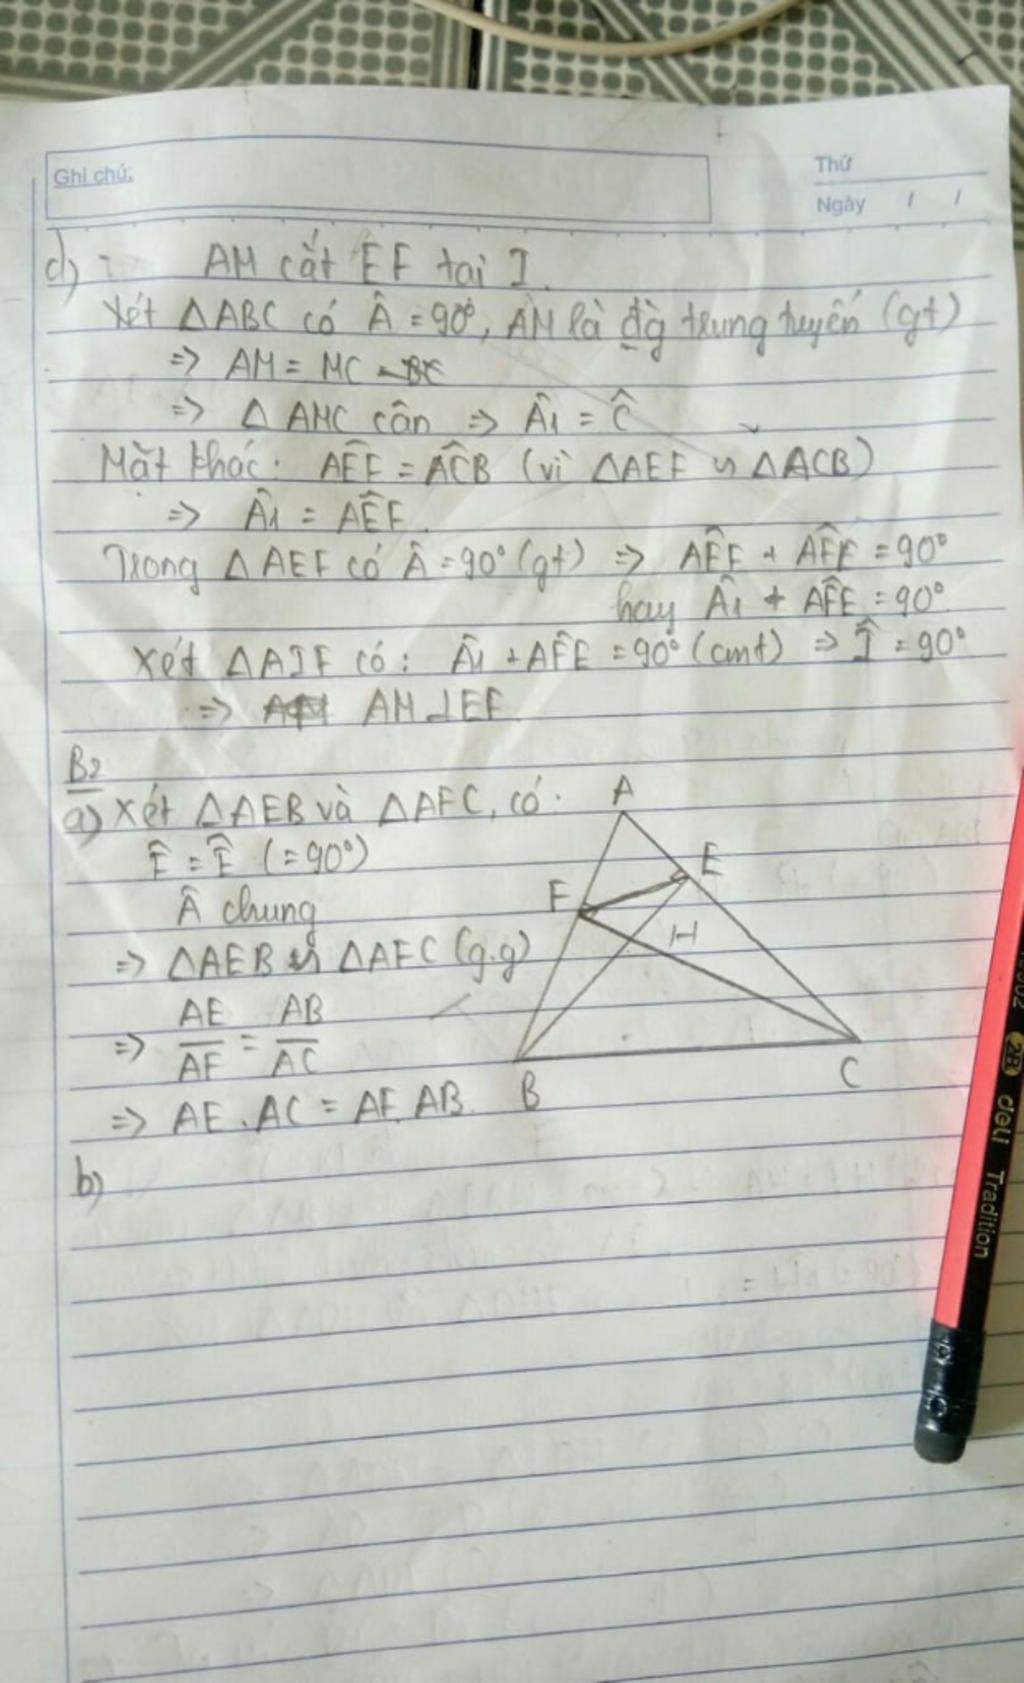 Ghi chú:
Thứ
Ngày / /
d) AM cắt EF tại I.
Xét ΔABC có Â = 90°, AM là đg trung tuyến (gt)
=> AM = MC
=> Δ AMC cân => Â1 = Ĉ
Mặt khác: AÊF = AĈB (vì ΔAEF ∽ ΔACB)
=> Â1 = AÊF.
Trong ΔAEF có Â = 90° (gt) => AÊF + AF̂E = 90°
hay Â1 + AF̂E = 90°
Xét ΔAIF có: Â1 + AF̂E = 90° (cmt) => Î = 90°
=> AM ⊥ EF
B2
a) Xét ΔAEB và ΔAFC, có:
Ê = F̂ (= 90°)
Â chung
=> ΔAEB ∽ ΔAFC (g.g)
=> AE/AF = AB/AC
=> AE . AC = AF. AB.
b)
A
E
F
H
B
C
2B deli Tradition